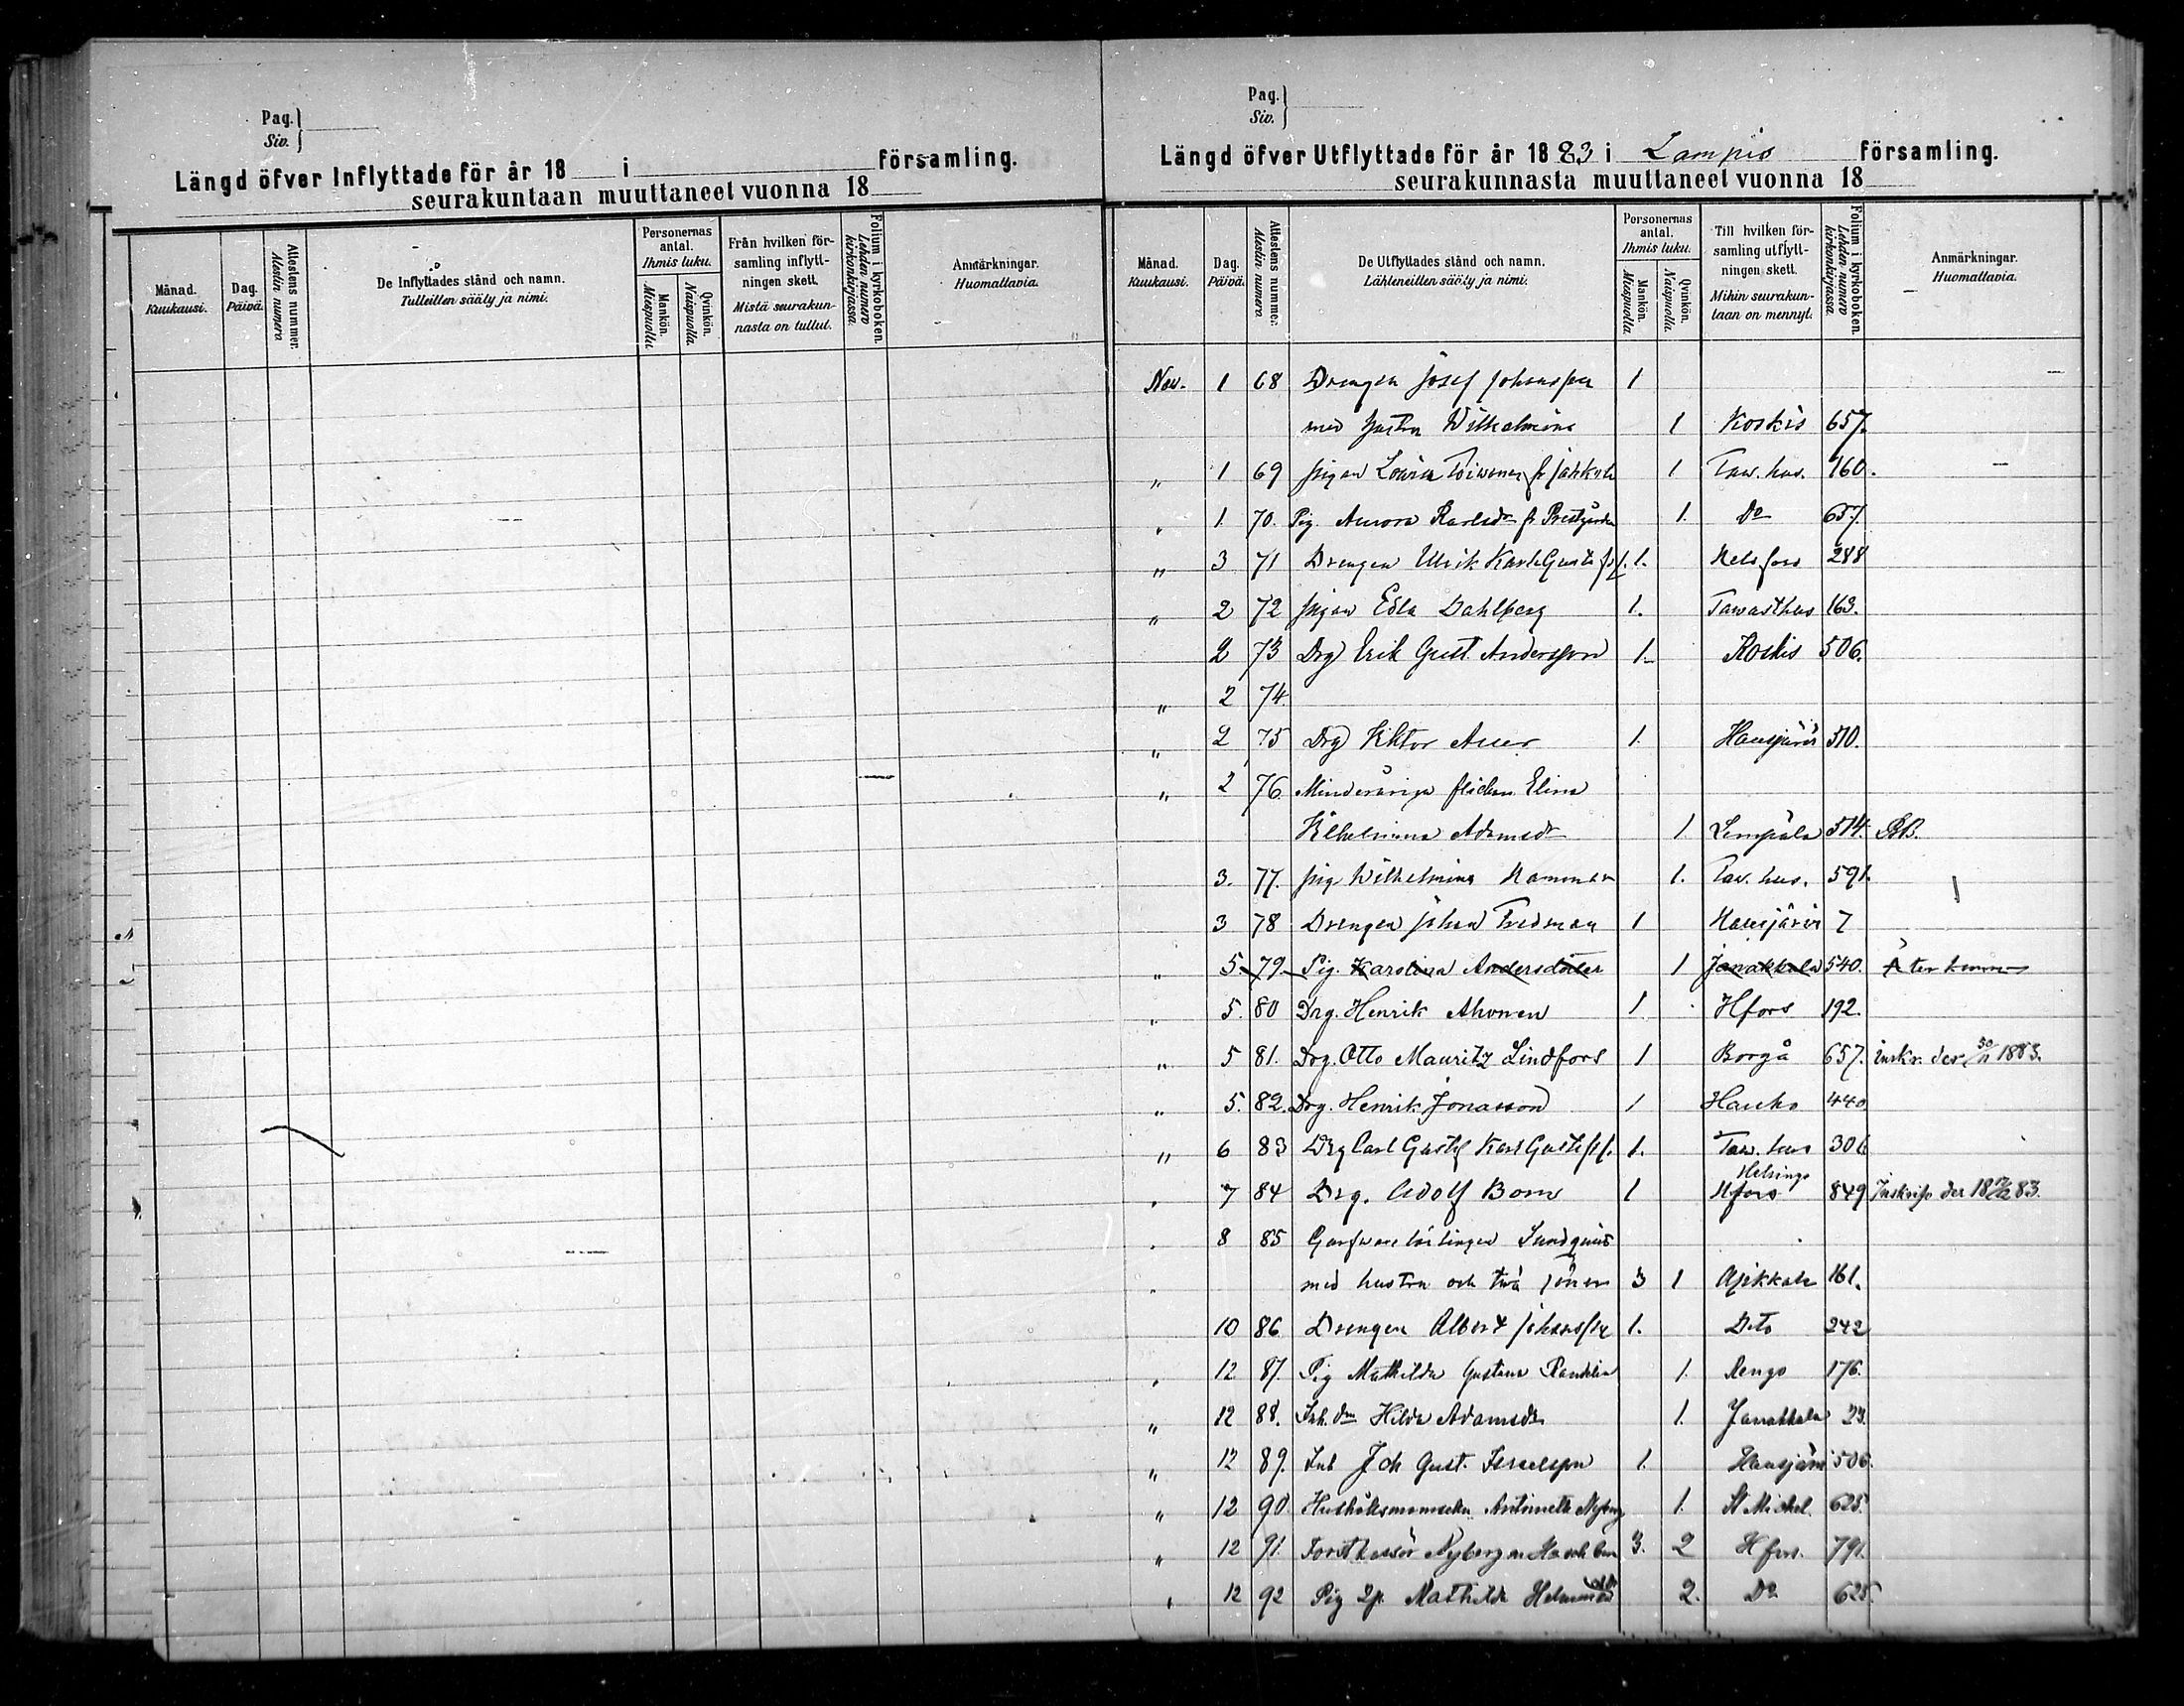 Pag.
Siv.
Längd öfver Inflyttade för år 18 i församling.
seurakuntaan muuttaneet vuonna 18
Månad. Kuukausi.
Dag. Päivä.
Attestens nummer. Alestin numero
De Inflyttades stånd och namn.
Tulleitten sääty ja nimi.
Personernas antal. Ihmis luku.
Mankön. Miespuolia
Qvinkön. Naispuolia.
Från hvilken församling inflyttningen skett.
Mistä seurakunnasta on tullut.
Folium i kyrkoboken. Lehden numero kirkonkirjassa.
Anmärkningar.
Huomattavia.
Pag.
Siv.
Längd öfver Utflyttade för år 1883 i Lampis församling.
seurakunnasta muuttaneet vuonna 18
Månad. Kuukausi.
Dag. Päivä.
Attestens nummer. Alestin numero
De Utflyttades stånd och namn.
Lähteneitten sääty ja nimi.
Personernas antal. Ihmis luku.
Mankön. Miespuolia
Qvinkön. Naispuolia.
Till hvilken församling utflyttningen skett.
Mihin seurakuntaan on mennyt.
Folium i kyrkoboken. Lehden numero kirkonkirjassa.
Anmärkningar.
Huomattavia.
Nov. 1 68 Drengen Josef Johansson 1
med hustru Wilhelmina 1 Koskis 657.
" 1 69 pigan Lovisa Toivonen fr Jahkola 1 Taw. hus. 160.
" 1. 70. Pig. Aurora Karlsdr fr Prestgården 1. Do 657
" 3 71 Drengen Ulrik Karl Gustafss. 1. Helsfors 288
" 2 72 pigan Edla Dahlberg 1. Tawasthus 163.
2 73 Drg Erik Gust Andersson 1. Koskis 506.
" 2 74.
" 2 75 Drg Viktor Auer 1. Hausjärvi 510.
" 2 76. Minderåriga flickan Elina
Vilhelmina Adamsdr 1 Lempäla 514.
3. 77. pig. Wilhelmina Hammar 1. Taw. hus. 591.
3 78 Drengen Johan Fredman 1 Hausjärvi 7
" 5 79 Pig. Karolina Andersdotter 1 Janakkala 540. Återkommen
" 5. 80 Drg. Henrik Ahonen 1. Hfors 192.
" 5 81. Drg. Otto Mauritz Lindfors 1 Borgå 657. inskr. der 30/11 1883.
" 5. 82. Drg. Henrik Jonasson 1 Hauho 440
" 6 83 Drg Carl Gustaf Karl Gustafss. 1. Taw. hus 306
" 7 84 Drg. Adolf Bom 1 Helsinge Hfors 849 Inskrifv der 18 83.
" 8 85 Garfvare lärlingen Sundqvist
" med hustru och två söner 3 1 Asikkala 161.
10 86 Drengen Albert Johansson 1. Dito 242
" 12 87. Pig Mathilda Gustava Randelin 1. Rengo 176.
" 12 88. Inh. dr Hilda Adamsdr 1. Janakkala 23.
" 12 89. Inh Joh Gust. Israelsson 1. Hausjärvi 506.
" 12 90. Hushållsmamsellen Antoinette Nyberg 1. St Michel. 625
" 12 91. Nyberg 3. 2 Hfors. 791.
" 12 92 Pig Mathilda 2. Do 625.